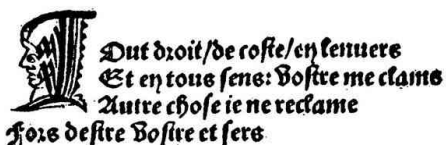 Tout droit/de coste/en lenuers
Et en tous sens: Vostre me clame
Autre chose ie ne reclame
Fors destre Vostre et sers